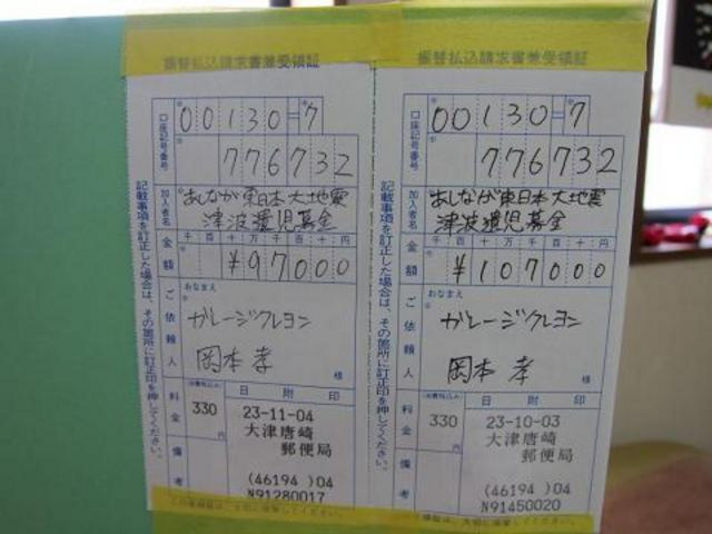 振替払込請求書兼受領証
口座記号番号
00130=7
776732
加入者名
あしなが東日本大地震
津波遺児募金
金額
千百十万千百十円
¥97000
ご依頼人
おなまえ
ガレージクレヨン
岡本孝
様
料金
消費税込み
330
円
日附印
23-11-04
大津唐崎
郵便局
(46194 )04
N91280017
備考
記載事項を訂正した場合は、その箇所に訂正印を押してください。
振替払込請求書兼受領証
口座記号番号
00130=7
776732
加入者名
あしなが東日本大地震
津波遺児募金
金額
千百十万千百十円
¥107000
ご依頼人
おなまえ
ガレージクレヨン
岡本孝
様
料金
消費税込み
330
円
日附印
23-10-03
大津唐崎
郵便局
(46194 )04
N91450020
備考
記載事項を訂正した場合は、その箇所に訂正印を押してください。